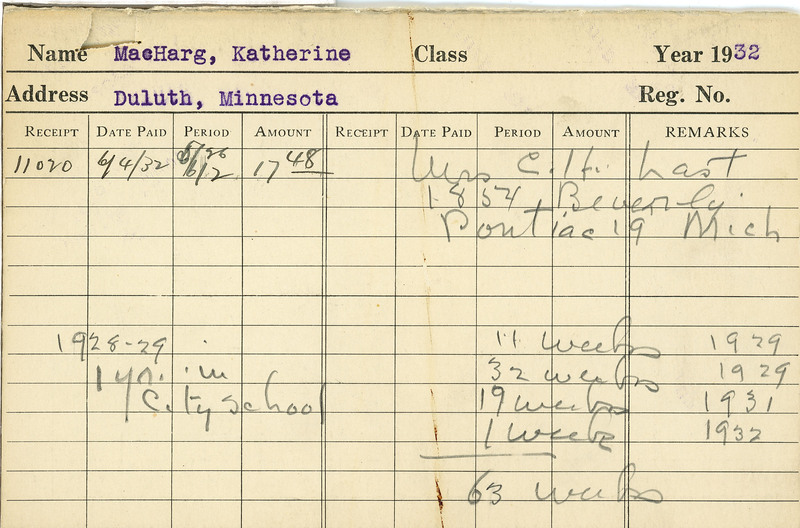 Name MacHarg, Katherine Class Year 1932
Address Duluth, Minnesota Reg. No.
RECEIPT DATE PAID PERIOD AMOUNT RECEIPT DATE PAID PERIOD AMOUNT REMARKS
11020 6/4/32 5/26 6/12 17 48 Mrs C. H. Last
1854 Beverly
Pontiac 19 Mich
1928-29 11 weeks 1929
1 yr. in 32 weeks 1929
City School 19 weeks 1931
1 weeks 1932
63 weeks